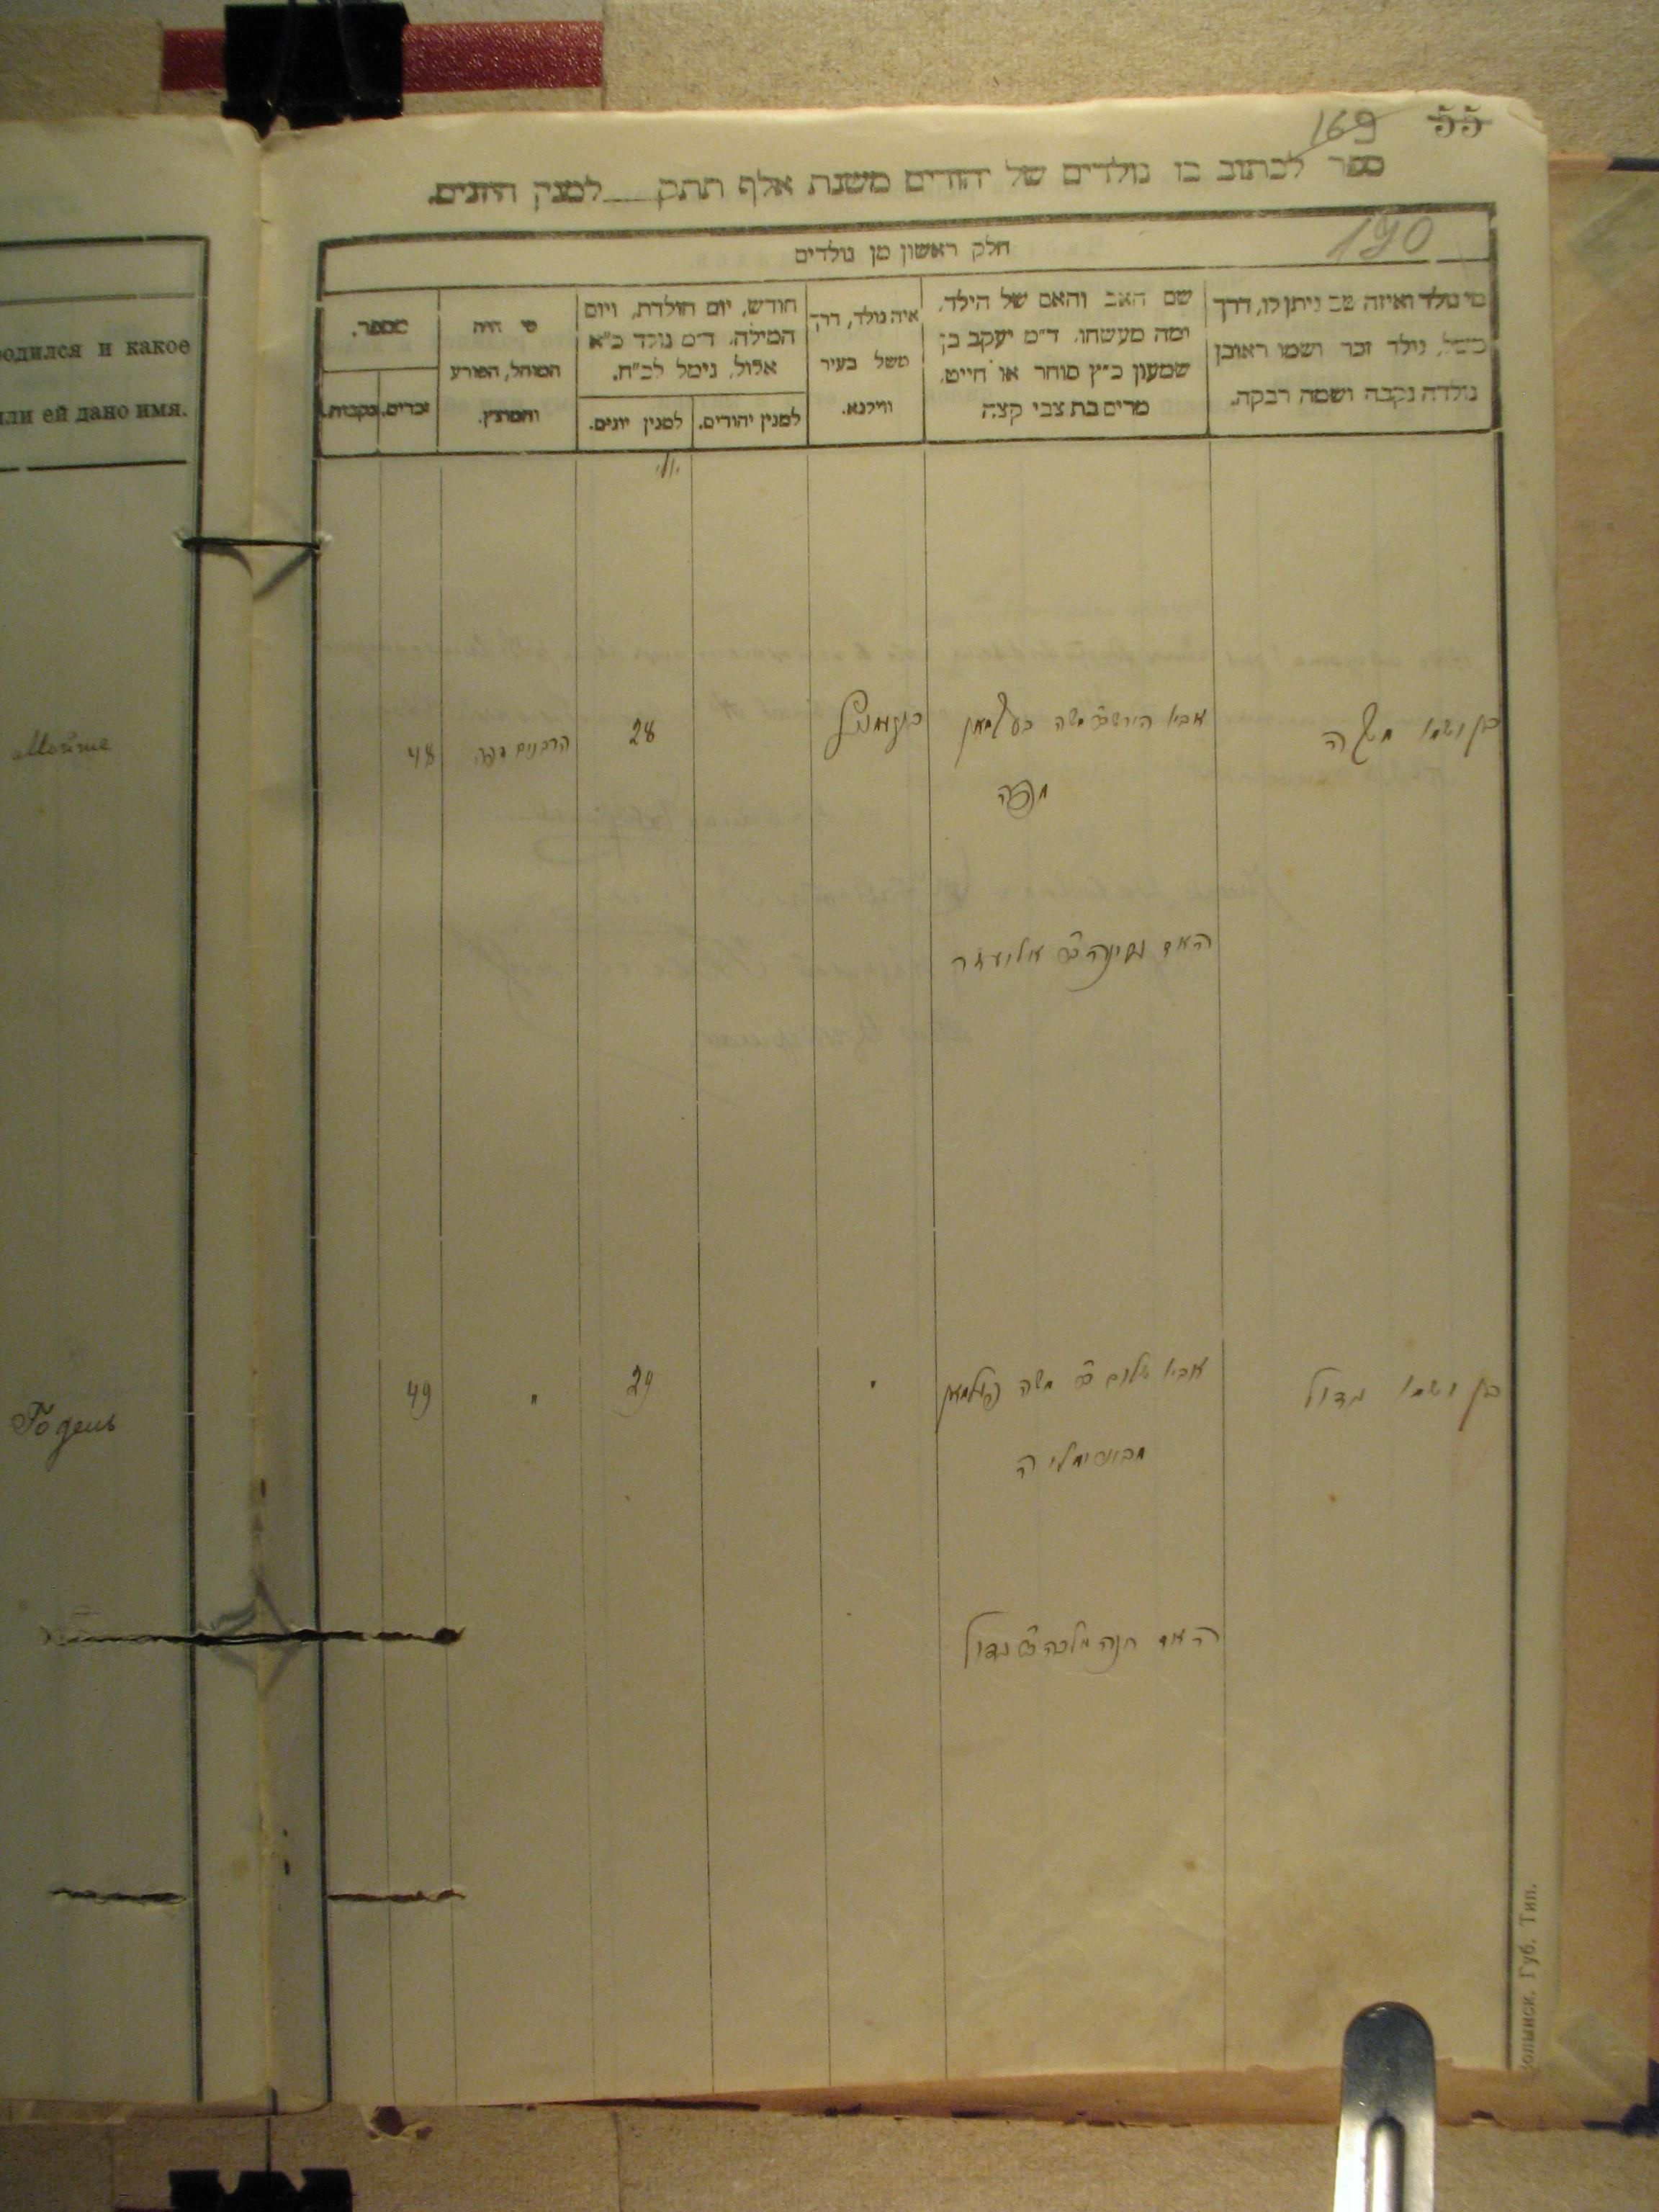 169 55
ספר לכתוב בו נולדים של יהודים משנת אלף תתק למנין היונים.
190
חלק ראשון מן נולדים
מי נולד ואיזה שם ניתן לו, דרך
משל, נולד זכר ושמו ראובן
נולדה נקבה ושמה רבקה.
שם האב והאם של הילד,
ומה מעשהו. ד״מ יעקב בן
שמעון כ״ץ סוחר או חייט,
מרים בת צבי קצה
איה נולד, דרך
משל בעיר
ווילנא.
חודש, יום הולדת, ויום
המילה. ד״מ נולד כ״א
אלול, נימל לכ״ח.
למנין יהודים. למנין יונים.
מי היה
המוהל, הפורע
והמוצץ.
מספר.
זכרים. נקבות.
יולי
בן ושמו משה
אביו הירש ב״ר משה
28
48
האם ב״ר אליעזר
בן ושמו גדול
אביו שלום ב״ר משה
29
"
49
האם חנה מלכה ב״ר גדול
родился и какое
или ей дано имя.
Мойше
Годель
Волынск. Губ. Тип.